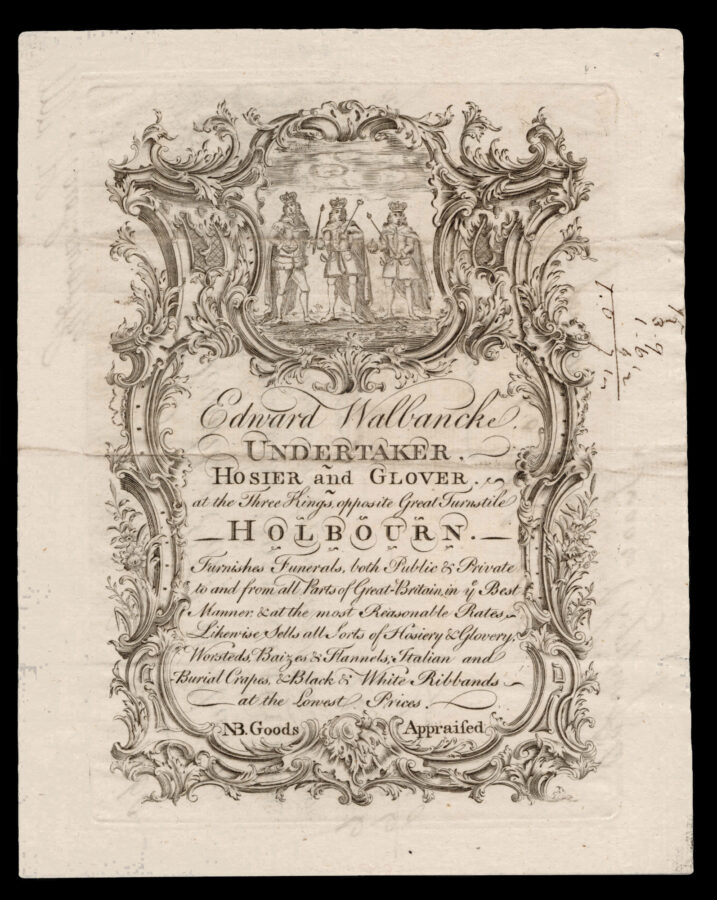 Edward Walbancke.
UNDERTAKER,
HOSIER and GLOVER.
at the Three Kings, opposite Great Turnstile
HOLBOURN.
Furnishes Funerals, both Public & Private
to and from all Parts of Great-Britain, in yͤ Best
Manner & at the most Reasonable Rates,
Likewise Sells all Sorts of Hosiery & Glovery,
Worsteds, Baizes & Flannels, Italian and
Burial Crapes, & Black & White Ribbands
at the Lowest Prices.
NB. Goods Appraiſed